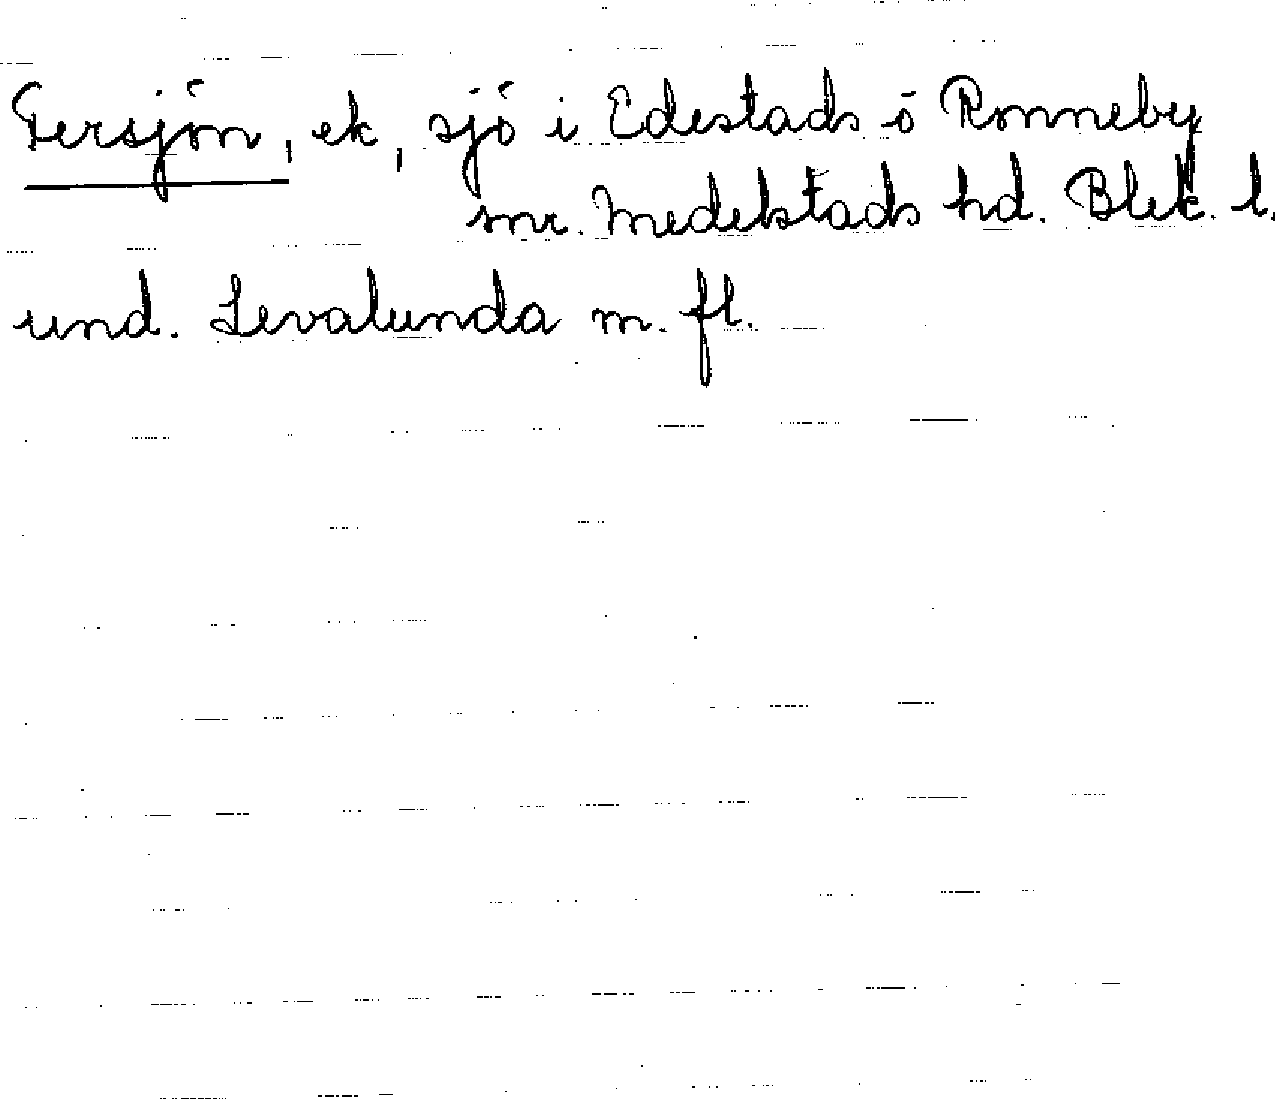 Gersjön, ek, sjö i Edestads o Ronneby
snr. Medelstads hd. Blek. l.
und. Levalunda m. fl.